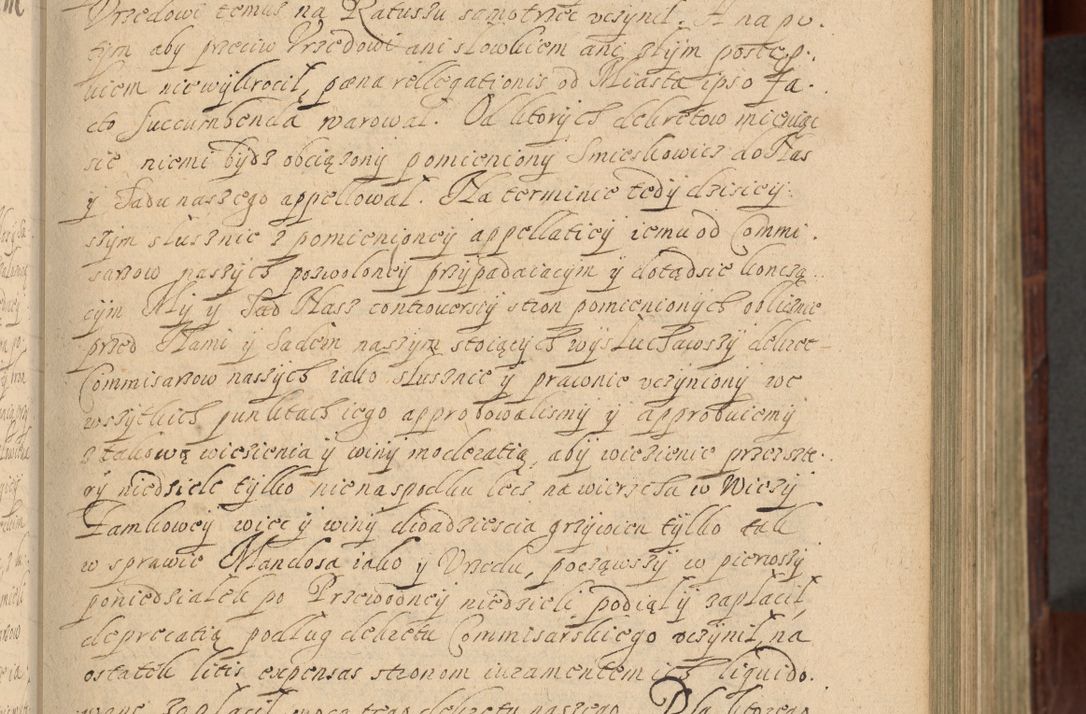 Vrzedowi temuż na Ratuszu samotrzec uczynił. A na po.
tym aby przeciw Vrzedowi ani słowkiem ani złym postęp.
kiem niewykrocił, pæna rellegationis od Miasta ipso fa.
cto succumbenda warował. Od ktorych dekretow mieniąc
sie niemi bydz obciążony pomieniony Smieszkowicz do Nas
y Sadu naszego appellował. Na terminie tedy dzisiey.
szym słusznie z pomienioney appellatiey iemu od Commi.
sarzow naszych pozwoloney przypadaiącym y dotądsie konczą.
cym My y Sąd Nasz controuersiy stron pomienionych oblicznie
przed Nami y Sadem naszym stoiących wysłuchawszy dekret
Commisarzow naszych iako słusznie y prawnie uczyniony we
wszytkich punktach iego approbowalismy y approbuiemy
z takową wiezienia y winy moderatią, aby wiezienie przez szte.
ry niedziele tylko nie na spodku lecz na wierzchu w Wiezy
Zamkowey wiec y winy dwadziescia grzywien tylko tak
w sprawie Mandosa iako y Vrzedu, począwszy w pierwszy
poniedziałek po Przewodney niedzieli podiął y zapłacił,
deprecatią podług dekretu Commisarskiego uczynił, na
ostatek litis expensas stronom iuramentem ich liquido.
wane zapłacił mocą tego dekretu naszego. Dla ktorego